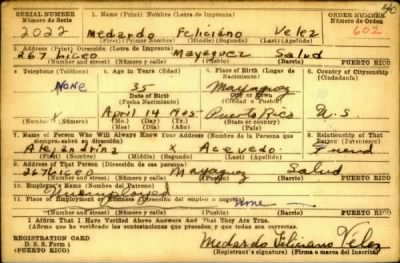 SERIAL NUMBER
Número de Serie
1. Name (Print) Nombre (Letra de Imprenta)
ORDER NUMBER
Número de Orden
2022 Medardo Feliciano Velez 602
(First) (Primer Nombre) (Middle) (Segundo) (Last) (Apellido)
2. Address (Print) Dirección (Letra de Imprenta)
267 Liceo Mayaguez Salud
PUERTO RICO
3. Telephone (Teléfono)
4. Age in Years (Edad)
5. Place of Birth (Lugar de Nacimiento)
6. Country of Citizenship
(Ciudadanía)
None 35 Mayaguez
Date of Birth
(Fecha Nacimiento)
City or Town
(Ciudad o Pueblo)
April 14 1905 Puerto Rico U.S
(Number) (Número)
State or country
(País)
7. Name of Person Who Will Always Know Your Address (Nombre de la Persona que
siempre sabrá su dirección)
Relationship of That
Person (Parentesco)
Alejandrina X Acevedo Friend
(Middle) (Segundo) (Last) (Apellido)
8. Address of That Person (Dirección de esa persona)
267 Liceo Mayaguez Salud
PUERTO RICO
10. Employer's Name (Nombre del Patrono)
Unemployed
11. Place of Employment or Business (Dirección del empleo o negocio)
none
PUERTO RICO
I Affirm That I Have Verified Above Answers And That They Are True.
(Afirmo que he verificado las contestaciones que preceden y que son ciertas.)
REGISTRATION CARD
D. S. S. Form 1
(PUERTO RICO)
Medardo Feliciano Velez
(Registrant's signature) (Firma o marca del Inscrito)